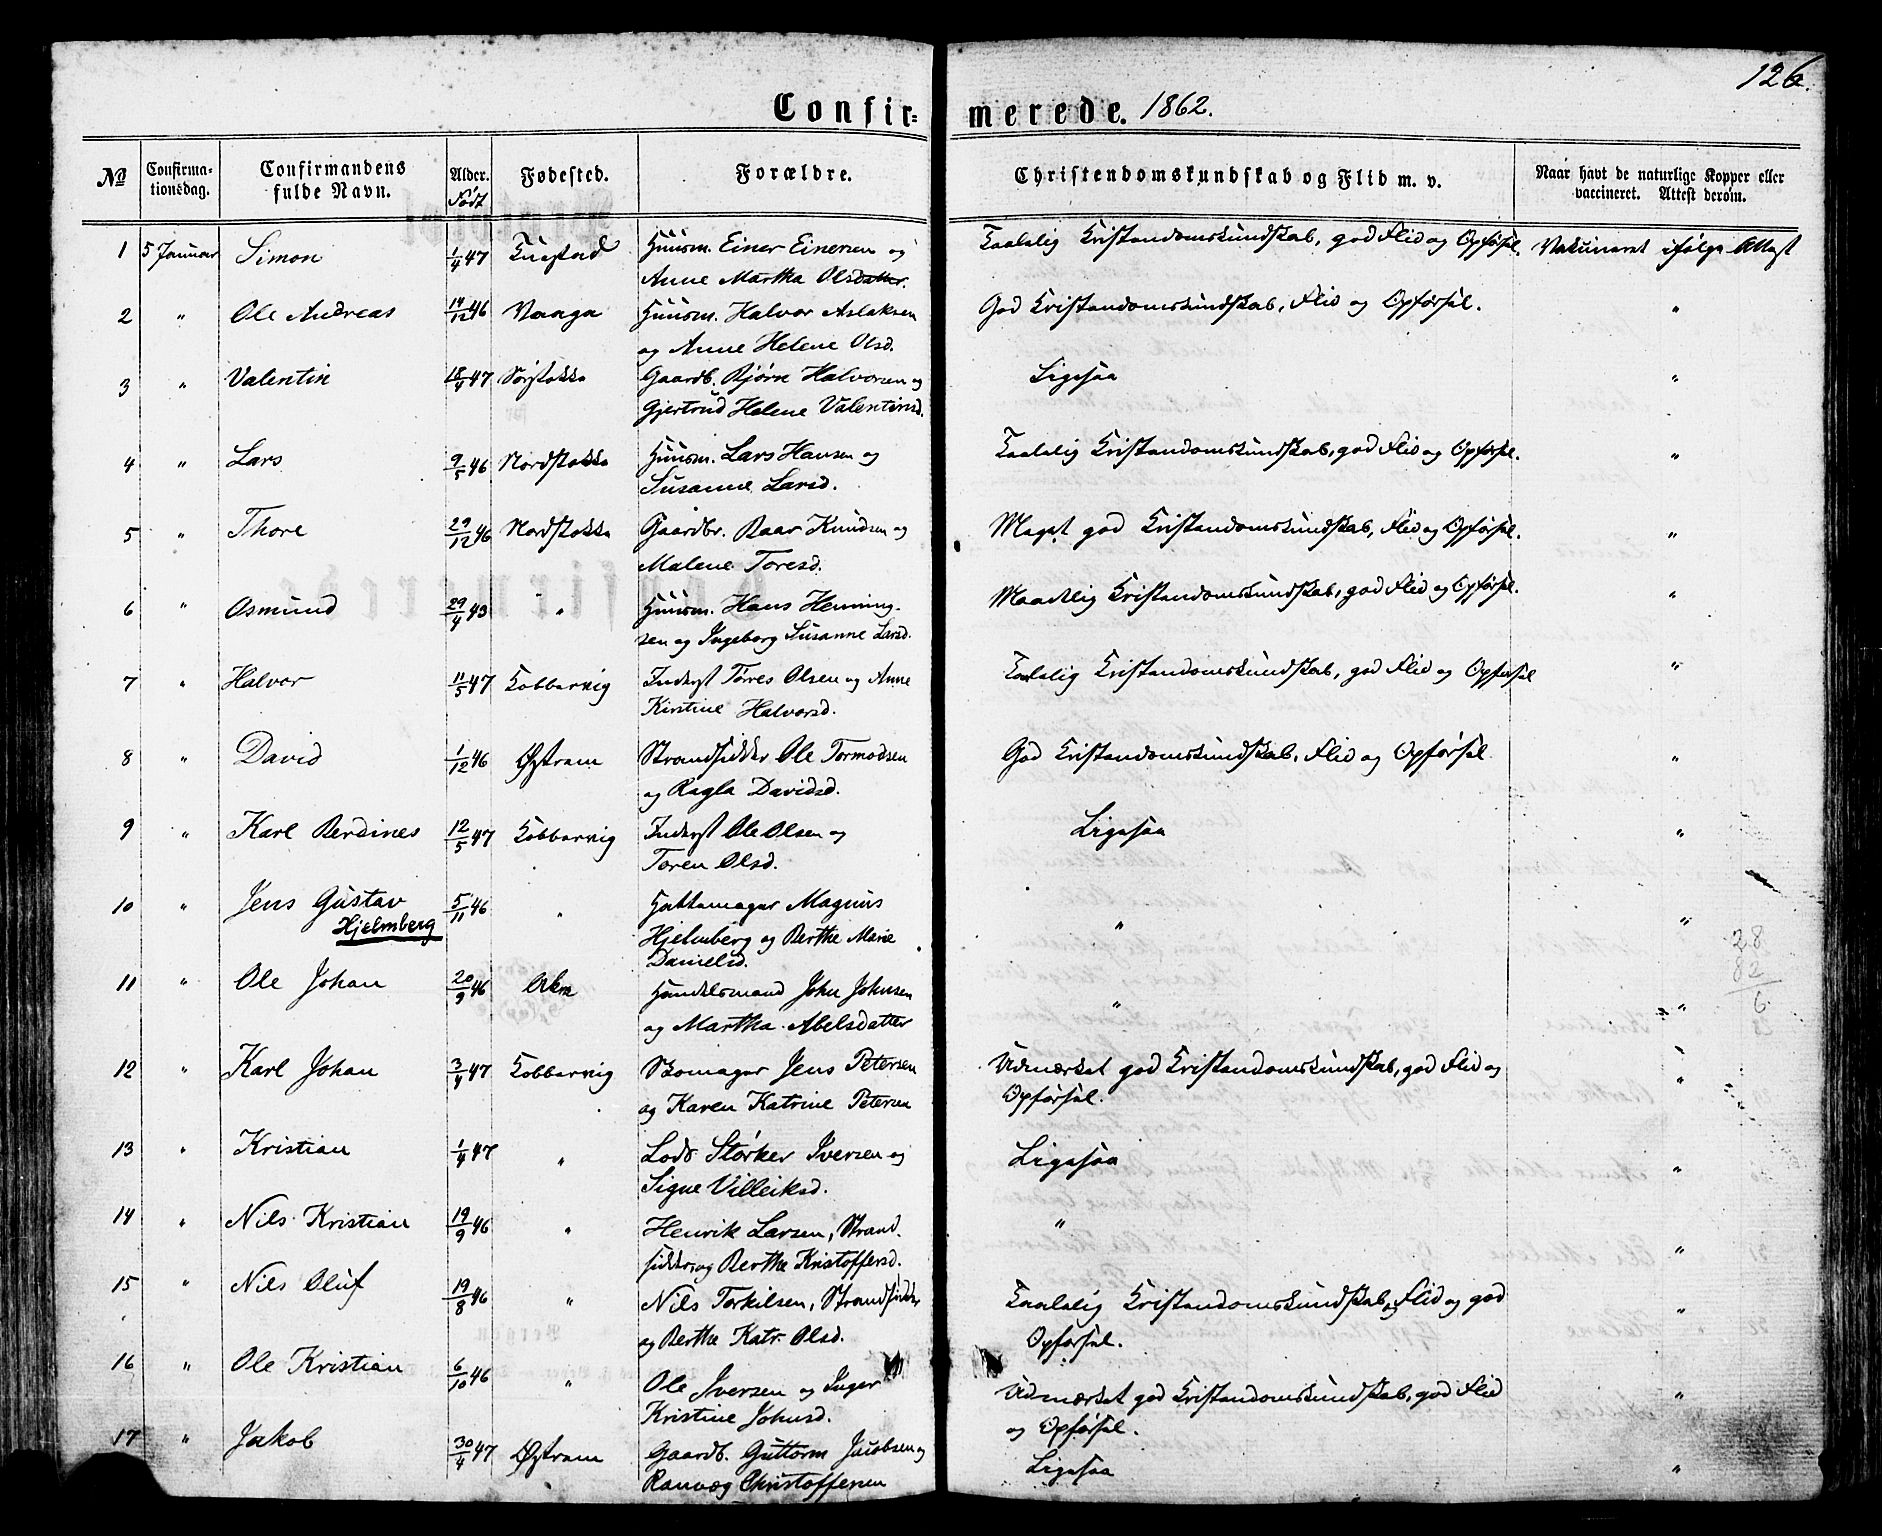 126.
Confir-
merede. 1862.
No
Confirma-
tionsdag.
Confirmandens
fulde Navn.
Alder.
Født
Fødested.
Forældre.
Christendomskundskab og Flid m. v.
Naar havt de naturlige Kopper eller
vaccineret. Attest derom.
1 5 Januar Simon 1/4 47 Huusm. Einer Einersen og Taalelig Kristendomskundskab, god Flid og Opførsel. Vakcineret ifølge Attest
Anne Martha Olsdatter.
2 " Ole Andreas 46 Vaaga Huusm. Halvor Aslaksen God Kristendomskundskab, Flid og Opførsel. "
og Anne Helene Olsd.
3 " Valentin 18/4 47 Sørstokke Gaardb. Bjørn Halvorsen og Ligesaa "
Gjertrud Helene Valentinsd.
4 " Lars 9/5 46 Nordstokke Huusm. Lars Hansen og Taalelig Kristendomskundskab, god Flid og Opførsel. "
Susanne Larsd.
5 " Thore 29/12 46 Nordstokke Gaardbr. Baar Knudsen og Meget god Kristendomskundskab, Flid og Opførsel. "
Malene Toresd.
6 " Osmund 29/4 43 " Huusm. Hans Henning- Maadelig Kristendomskundskab, god Flid og Opførsel. "
sen og Ingeborg Susanne Larsd.
7 " Halvor 11/5 47 Kobbervig Inderst Tørres Olsen og Anne Taalelig Kristendomskundskab, god Flid og Opførsel "
Kirstine Halvorsd.
8 " David 1/12 46 Østrem Strandsidder Ole Tormodsen God Kristendomskundskab, Flid og Opførsel "
og Ragla Davidsd.
9 " Karl Berdines 12/5 47 Kobbervig Inderst Ole Olsen og Ligesaa "
Toren Olsd.
10 " Jens Gustav 5/11 46 " Hattemager Magnus " "
Hjelmberg
Hjelmberg og Berthe Marie
Danielsd.
28
82
6
11 " Ole Johan 20/9 46 Handelsmand John Johnsen " "
og Martha Abelsdatter
12 " Karl Johan 3/4 47 Kobbervig Skomager Jens Petersen Udmærket god Kristendomskundskab, god Flid og "
og Karen Katrine Petersen Opførsel.
13 " Kristian 1/4 47 " Lods Størker Iversen og Ligesaa "
Signe Villeiksd.
14 " Nils Kristian 19/9 46 " Henrik Larsen, Strand- " "
sidder og Berthe Kristoffersd.
15 " Nils Oluf 19/8 46 " Nils Torkilsen, Strandsidder Taalelig Kristendomskundskab, Flid og god "
og Berthe Katr. Olsd. Opførsel.
16 " Ole Kristian 6/10 46 " Ole Iversen og Inger Udmærket god Kristendomskundskab, god Flid "
Kristine Johnsd. og Opførsel.
17 " Jakob 30/4 47 Østrem Gaardb. Guttorm Jacobsen og Ligesaa "
Ranvæg Christoffersen